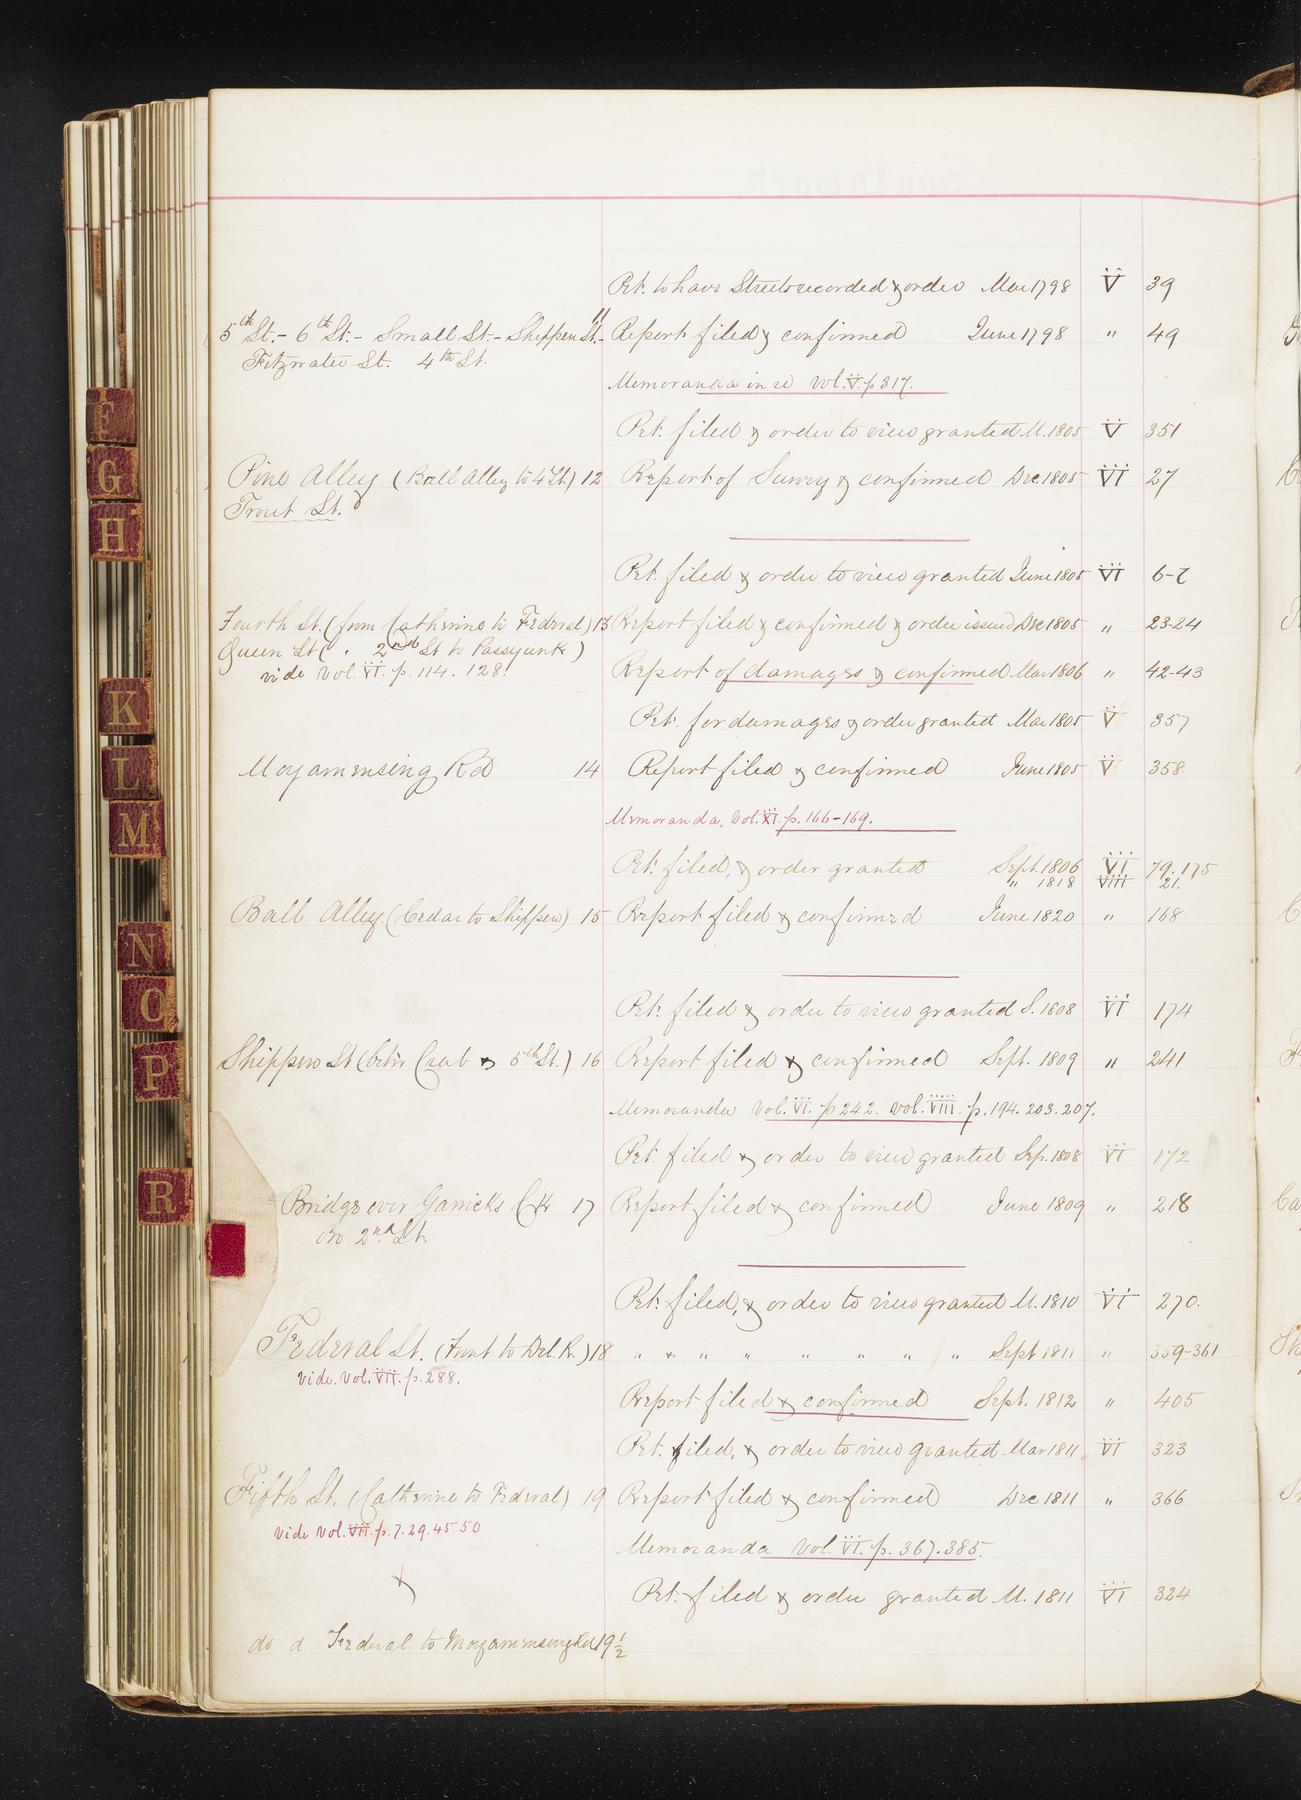 Pet. to have Streets recorded & order Mar 1798 V 39
5th St. - 6th St. - Small St. - Shippen St. - 11 Report filed & confirmed June 1798 " 49
Fitzwater St. 4th St.
Memoranda in re vol. V. p 317.
Pet. filed & order to view granted M. 1805 V 351
Pine Alley (Ball Alley to 4 St.) 12 Report of Survey & confirmed Dec. 1805 VI 27
Trout St.
Pet. filed & order to view granted June 1805 VI 6-7
Fourth St. (from Catherine to Federal) 13 Report filed & confirmed & order issued Dec 1805 " 23-24
Queen St ( " 2nd St to Passyunk )
vide Vol. VI. p. 114. 128.
Report of damages & confirmed Mar 1806 " 42-43
Pet. for damages & order granted Mar 1805 V 357
Moyamensing Rd 14 Report filed & confirmed June 1805 V 358
Memoranda, Vol. XI. p. 166-169.
Pet. filed, & order granted Sept. 1806 VI 79. 175
" 1818 VIII 21.
Ball Alley (Cedar to Shippen) 15 Report filed & confirmed June 1820 " 168
Pet. filed & order to view granted S. 1808 VI 174
Shippen St (betw Crab & 5th St.) 16 Report filed & confirmed Sept. 1809 " 241
Memoranda Vol. VI. p 242. Vol. VIII. p. 194. 203. 207.
Pet. filed & order to view granted Sep. 1808 VI 172
Bridge over Garricks Ck 17 Report filed & confirmed June 1809 " 218
on 2nd St.
Pet. filed, & order to view granted M. 1810 VI 270.
Federal St. (Front to Del. R.) 18 " & " " " " " " Sept 1811 " 359-361
vide. Vol. VII. p. 288.
Report filed & confirmed Sept. 1812 " 405
Pet. filed, & order to view granted Mar 1811 VI 323
Fifth St. (Catherine to Federal) 19 Report filed & confirmed Dec 1811 " 366
vide Vol. VII. p. 7. 29. 45. 50
Memoranda Vol VI. p. 367. 385.
Pet. filed & order granted M. 1811 VI 324
do d Federal to Moyamensing Rd 19 1/2
F
G
H
K
L
M
N
O
P
R